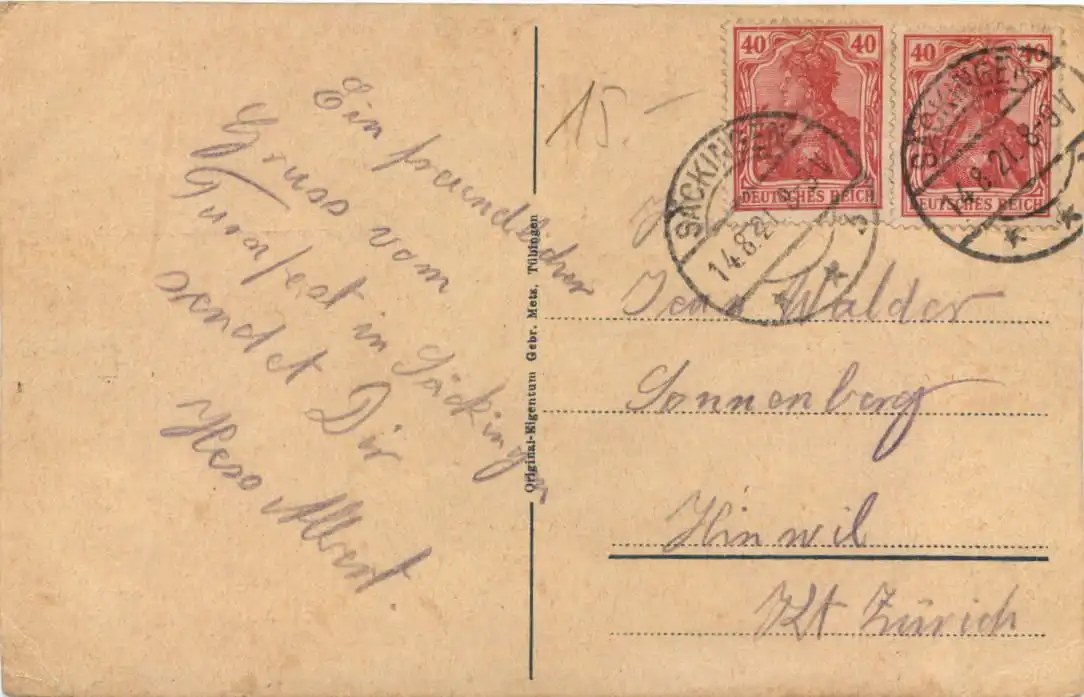 Ein freundlicher
Gruss vom
Turnfest in Säckingen
sendet Dir
Albert.
15.-
40 40
DEUTSCHES REICH
40 40
DEUTSCHES REICH
SÄCKINGEN
14.8.21. 8-9V
SÄCKINGEN
14.8.21. 8-9V
Original-Eigentum Gebr. Metz, Tübingen
Walder
Sonnenberg
Hinwil
Kt Zürich